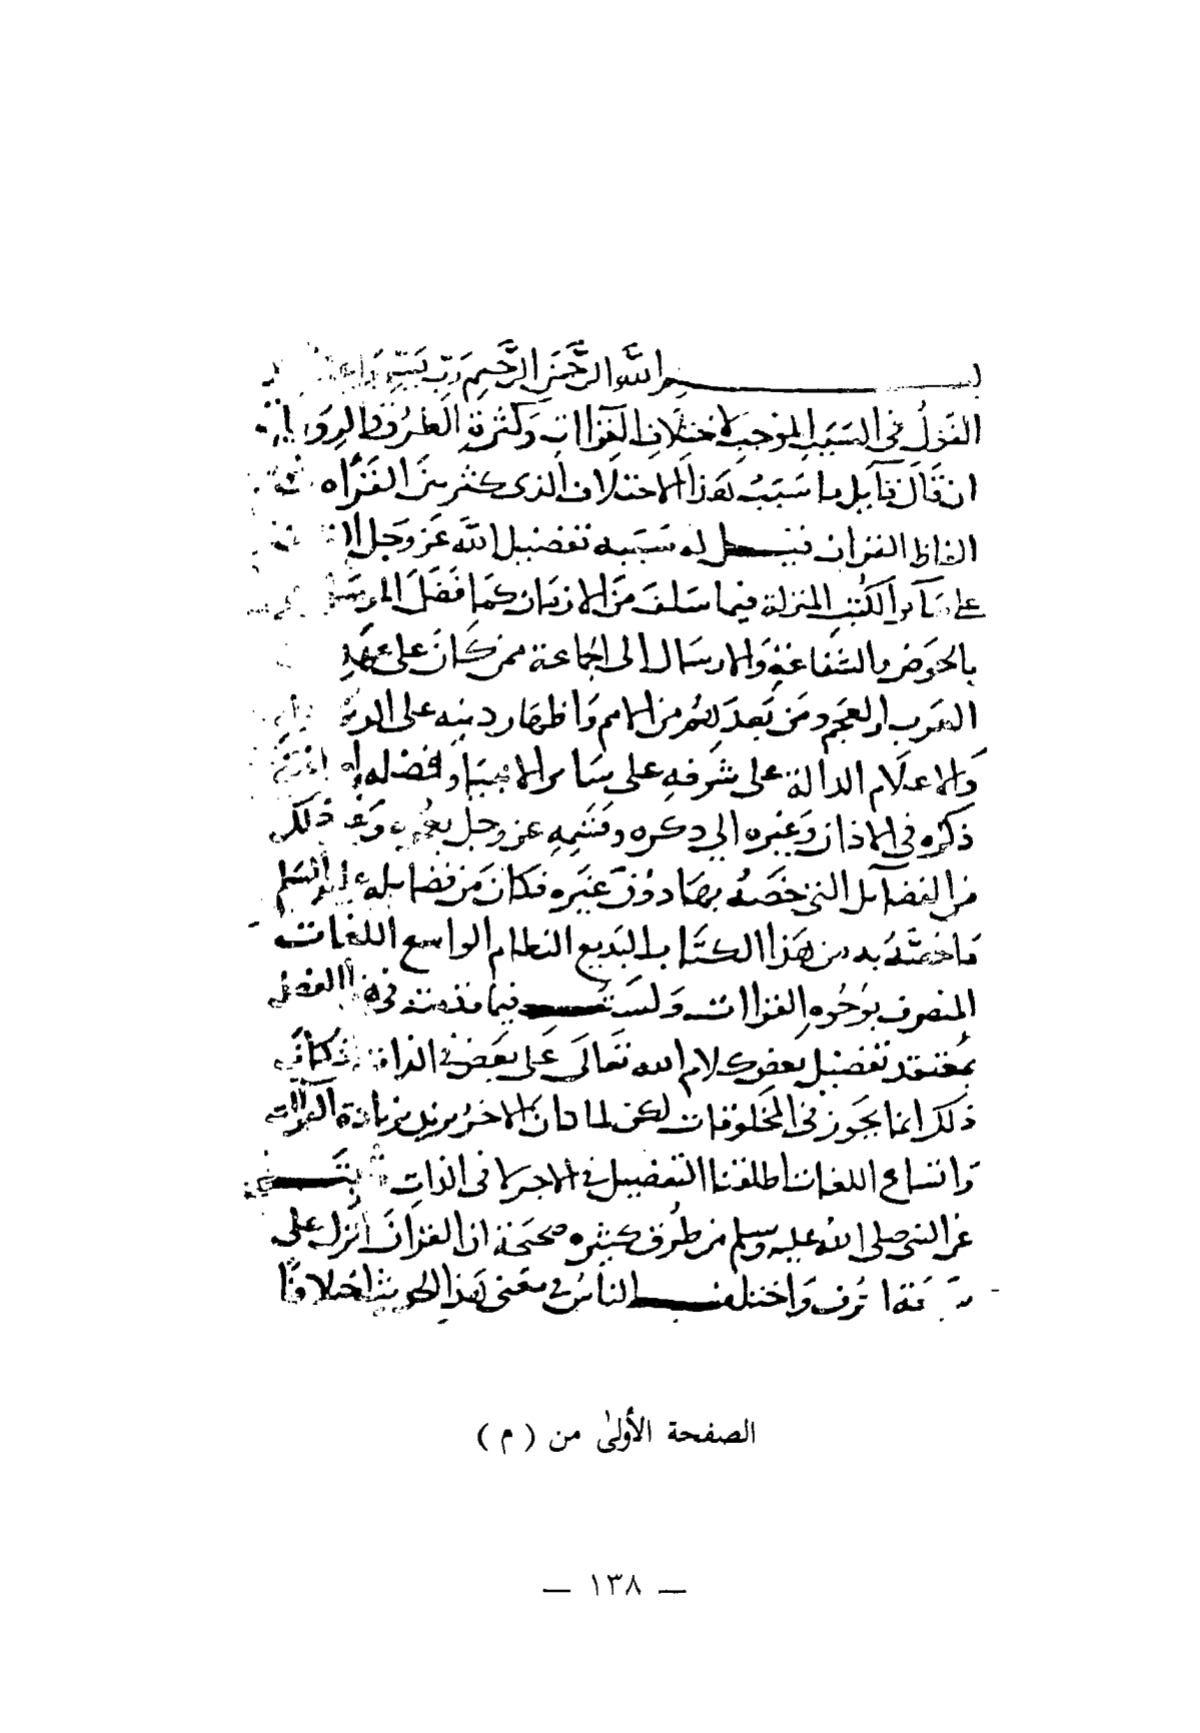 بسم الله الرحمن الرحيم رب يسر
القول في السبب الموجب لاختلاف القراات وكثرة الطرق والروايات
ان قال قايل ما سبب هذا الاختلاف الذي كثر بين القراه
الفاظ القران فيقل له سببه تفضيل الله عز وجل
على سآير الكتب المنزلة فيما سلف من الازمان كما فضل
بالحوض والشفاعة والارسال الى الجماعة ممن كان على عهده
العرب والعجم ومن بعدهم من الامم واظهار دينه على
والاعلام الدالة على شرفه على ساير الانبيا وفضله
ذكره في الاذان وغيره الي ذكره وقسمه عز وجل بعمره وغير ذلك
من الفضآيل التي خصه بها دون غيره فكان من فضايله عليه السلم
ما خصه به من هذا الكتاب البديع النظام الواسع اللغات
المتصرف بوجوه القراات ولست فيما قدمته في هذا الفصل
بمعتقد تفضيل بعض كلام الله تعالى على بعض في الذات اذ كان
ذلك انما يجوز في المخلوقات لكن لما كان الاخر يزيل بزيادة القراات
واتساع اللغات اطلقنا التفضيل في الاجر لا في الذات
عن النبي صلى الله عليه وسلم من طرق كثيره صحيحة ان القران انزل على
سبعة احرف واختلف الناس في معنى هذا الحديث اختلافا
الصفحة الأولىٰ من ( م )
— ١٣٨ —